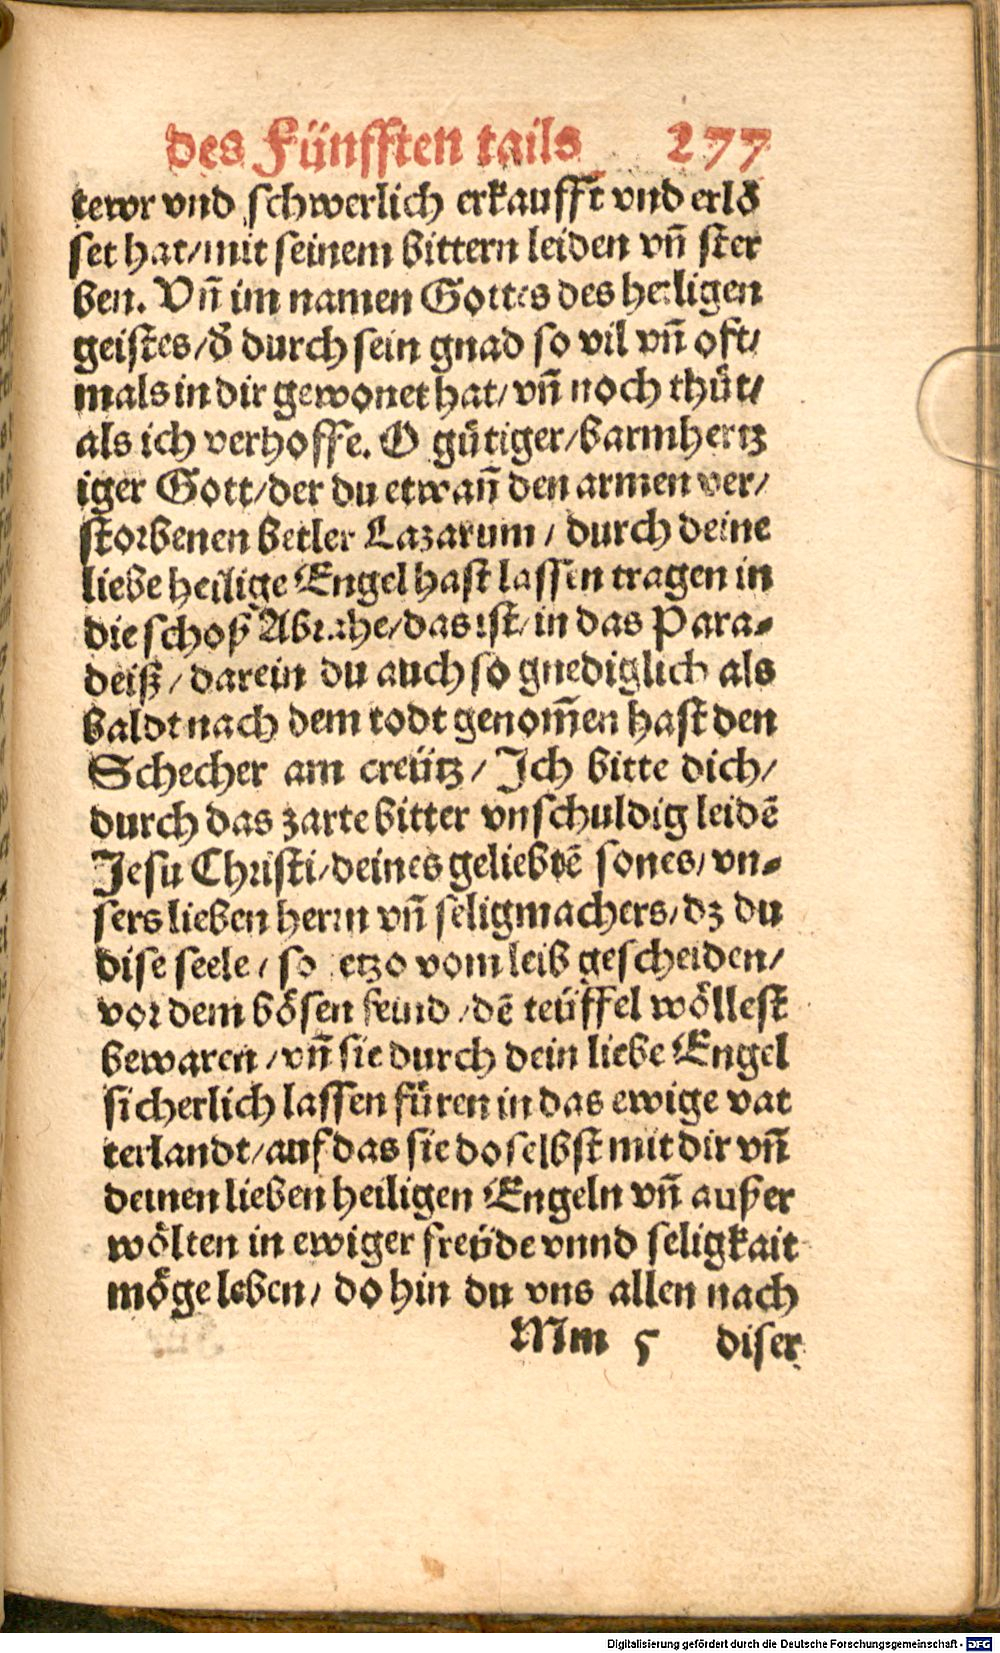 des Fünfften tails 277
tewr vnd schwerlich erkaufft vnd erlö
set hat/mit seinem bittern leiden vñ ster
ben. Vñ im namen Gottes des heiligen
geistes/ď durch sein gnad so vil vñ oft/
mals in dir gewonet hat/vñ noch thůt/
als ich verhoffe. O gütiger/barmhertz
iger Gott/der du etwañ den armen ver/
storbenen betler Lazarum/durch deine
liebe heilige Engel hast lassen tragen in
die schoß Abrahe/das ist/in das Para-
deiß/darein du auch so gnediglich als
baldt nach dem todt genom̃en hast den
Schecher am creütz/Ich bitte dich/
durch das zarte bitter vnschuldig leidẽ
Jesu Christi/deines geliebtẽ sones/vn-
sers lieben herrn vñ seligmachers/dz du
dise seele/so ietzo vom leib gescheiden/
vor dem bösen feind/dẽ teüffel wöllest
bewaren/vñ sie durch dein liebe Engel
sicherlich lassen füren in das ewige vat
terlandt/auf das sie doselbst mit dir vñ
deinen lieben heiligen Engeln vñ außer
wölten in ewiger freüde vnnd seligkait
möge leben/do hin du vns allen nach
Mm 5 diser
Digitalisierung gefördert durch die Deutsche Forschungsgemeinschaft - DFG